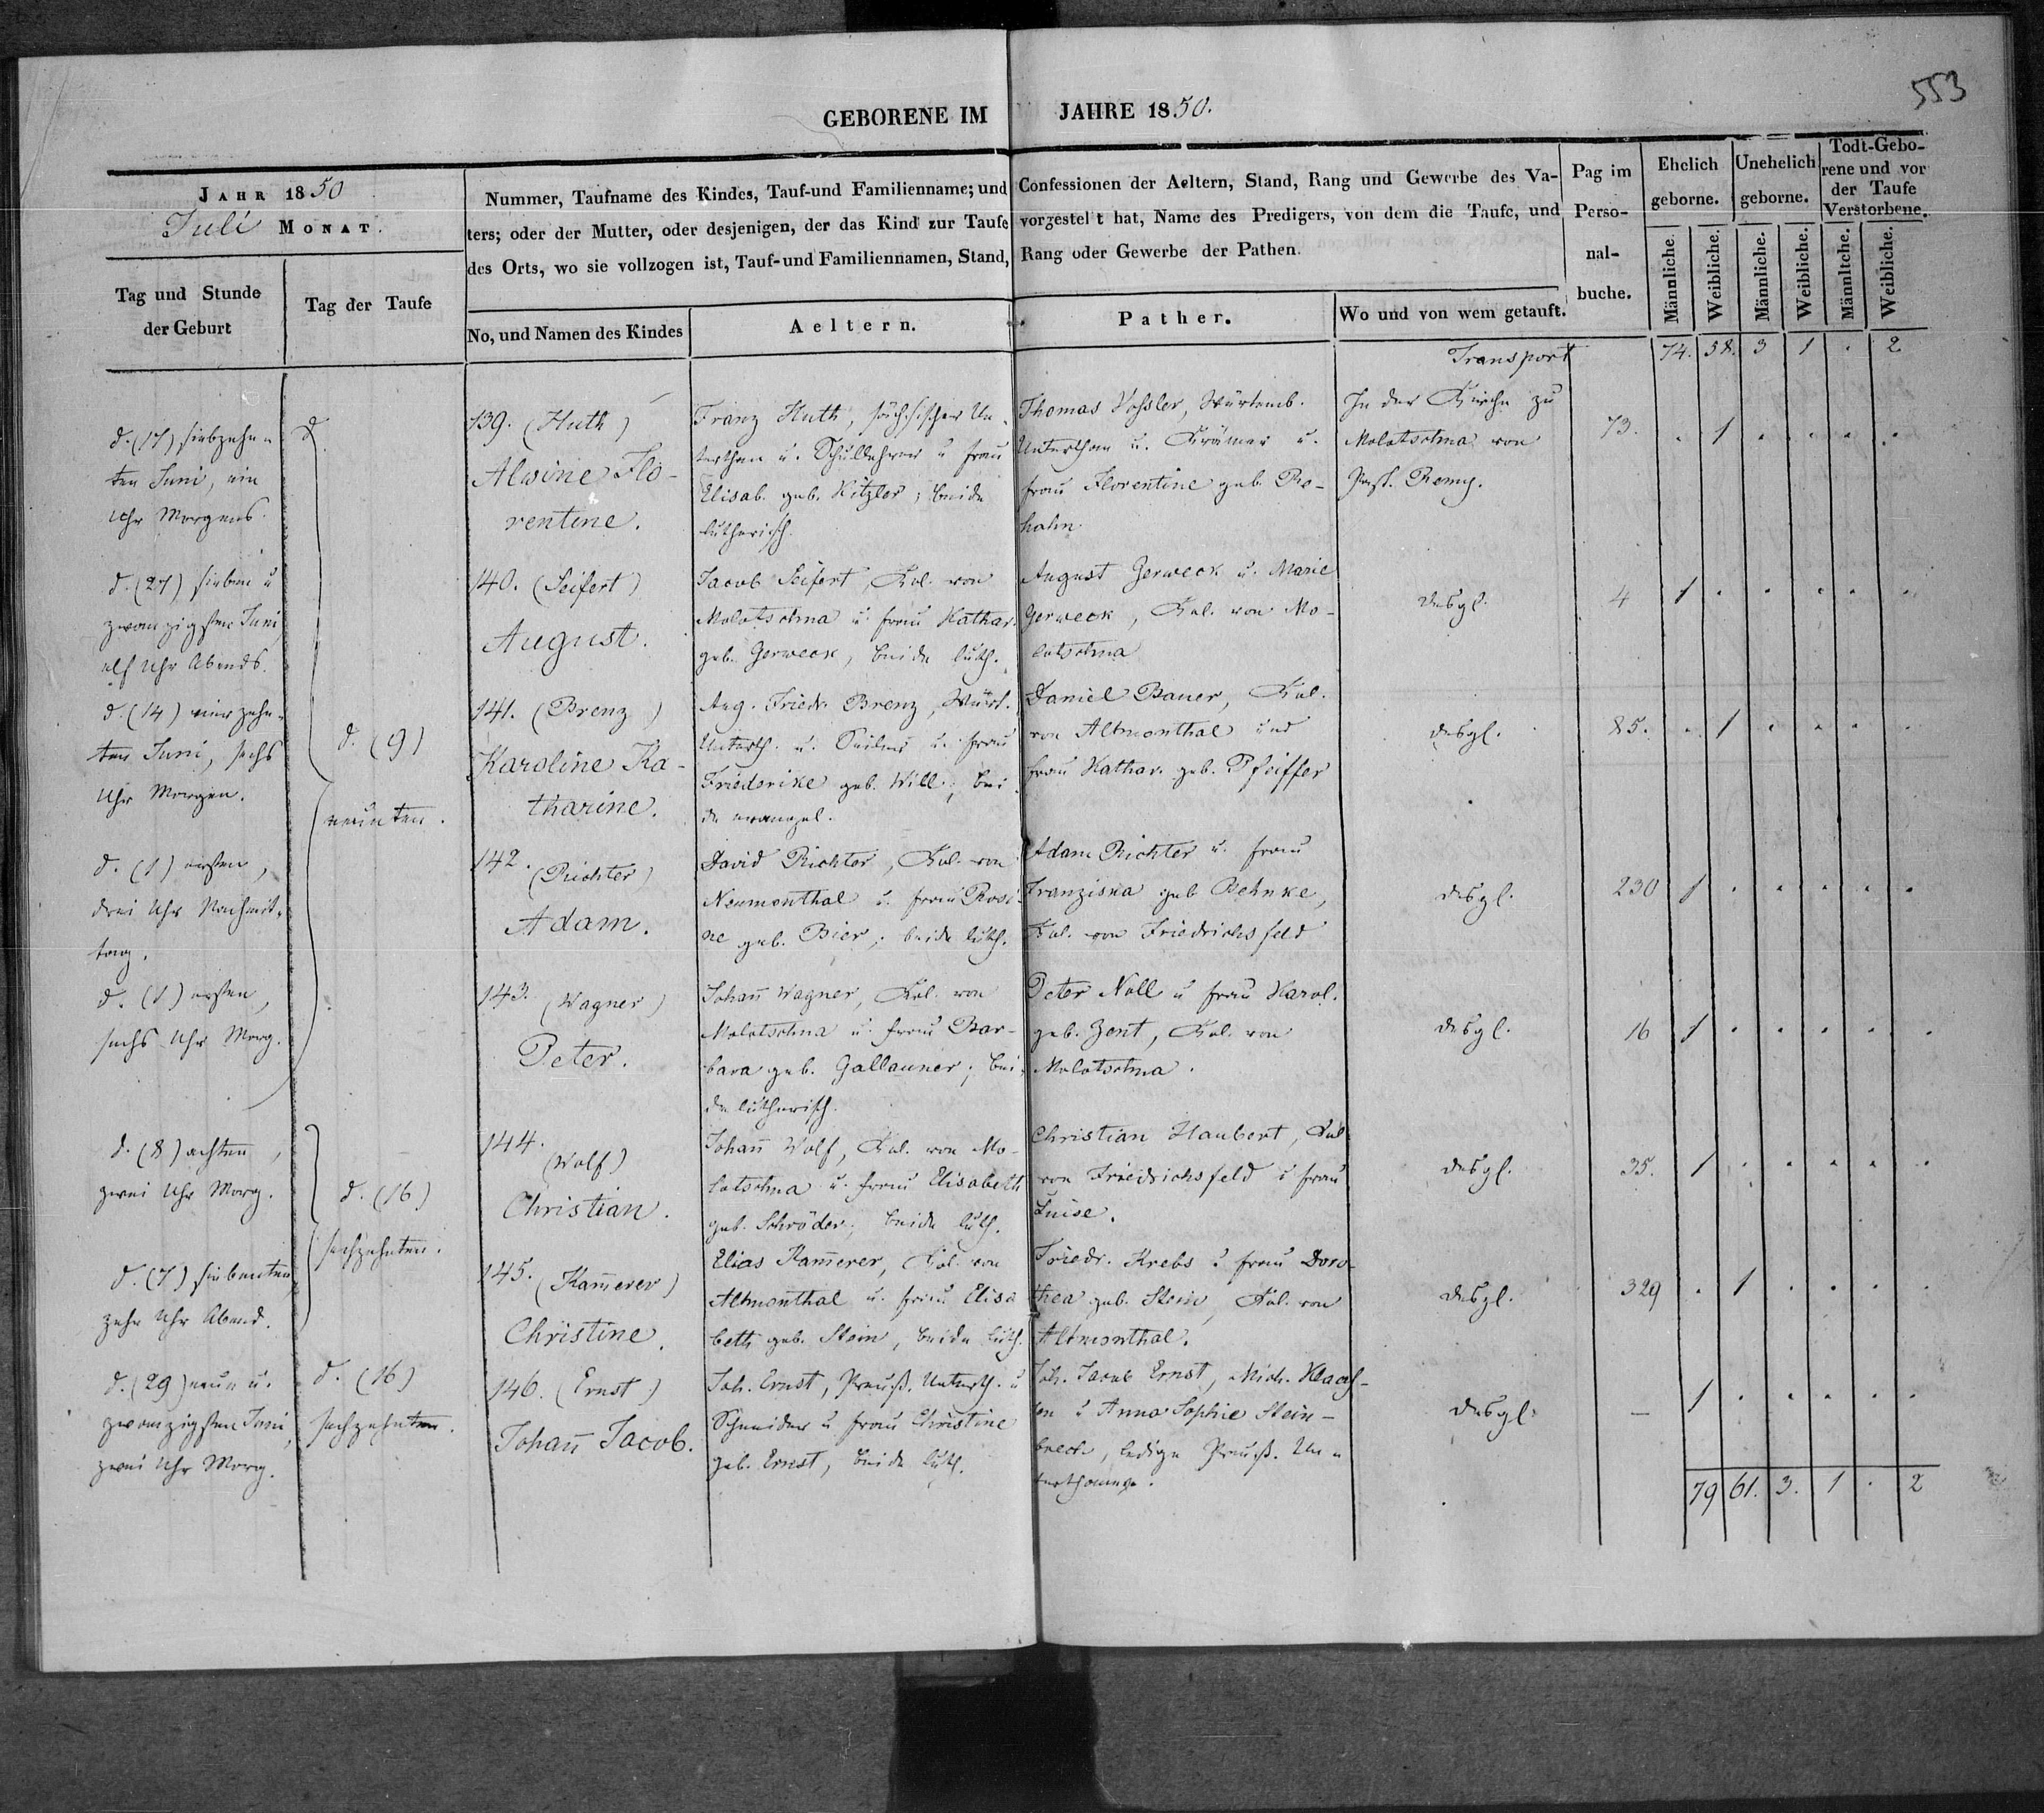 553
GEBORENE IM JAHRE 1850.
JAHR 1850
Juli MONAT.
Tag und Stunde
der Geburt
Tag der Taufe
Nummer, Taufname des Kindes, Tauf-und Familienname; und Confessionen der Aeltern, Stand, Rang und Gewerbe des Va-
ters; oder der Mutter, oder desjenigen, der das Kind zur Taufe vorgestel't hat, Name des Predigers, von dem die Taufe, und
des Orts, wo sie vollzogen ist, Tauf-und Familiennamen, Stand, Rang oder Gewerbe der Pathen.
No, und Namen des Kindes
Aeltern.
Pather.
Wo und von wem getauft.
Pag im
Perso-
nal-
buche.
Ehelich
geborne.
Unehelich
geborne.
Todt-Gebo-
rene und vor
der Taufe
Verstorbene.
Männliche.
Weibliche.
Männliche.
Weibliche.
Männltche.
Weibliche.
Transport
74. 58. 3 1 . 2
d. (17) siebzehn-
ten Juni, ein
Uhr Morgens.
d.
139. (Huth)
Alwine Flo-
rentine.
Franz Huth, sächsischer Un-
terthan u. Schullehrer u Frau
Elisab. geb. Kitzler; beide
lutherisch.
Thomas Vossler, Würtemb.
Unterthan u. Krämer u.
Frau Florentine geb. Ro-
hahn.
In der Kirche zu
Molotschna von
Past. Romy.
73. . 1 . . . .
d. (27) sieben u
zwanzigsten Juni,
elf Uhr Abends.
140. (Seifert)
August.
Jacob Seifert, Kol. von
Molotschna u. Frau Kathar.
geb. Gerweck, beide luth.
August Gerweck u. Marie
Gerweck, Kol. von Mo-
lotschna
desgl.
4 1 . . . . .
d. (14) vierzehn-
ten Juni, sechs
Uhr Morgen.
d. (9)
neunten.
141. (Brenz)
Karoline Ka-
tharine.
Aug. Friedr. Brenz, Würt.
Unterth. u. Seiler u. Frau
Friederike geb. Will; bei-
de evangel.
Daniel Bauer, Kol.
von Altmonthal und
Frau Kathar. geb. Pfeiffer
desgl.
85. . 1 . . . .
d. (1) ersten,
drei Uhr Nachmit-
tag.
142.
(Richter)
Adam.
David Richter, Kol. von
Neumonthal u. Frau Rosi-
ne geb. Bier; beide luth.
Adam Richter u. Frau
Franziska geb Behnke,
Kol. von Friedrichsfeld
desgl.
230 1 . . . . .
d. (1) ersten,
sechs Uhr Morg.
143. (Wagner)
Peter.
Johañ Wagner, Kol. von
Molotschna u. Frau Bar-
bara geb. Gallauner; bei-
de lutherisch.
Peter Noll u Frau Karol.
geb. Zent, Kol. von
Molotschna.
desgl.
16 1 . . . . .
d. (8) achten,
zwei Uhr Morg.
d. (16)
sechzehnten.
144.
(Wolf)
Christian.
Johañ Wolf, Kol. von Mo-
lotschna u. Frau Elisabeth
geb. Schröder; beide luth.
Christian Haubert, Kol
von Friedrichsfeld u Frau
Luise.
desgl.
35. 1 . . . . .
d. (7) siebenten,
zehn Uhr Abend.
145. (Kam̃erer)
Christine.
Elias Kam̃erer, Kol. von
Altmonthal u. Frau Elisa
beth geb. Stein, beide luth.
Friedr. Krebs u Frau Doro-
thea geb. Stein, Kol. von
Altmonthal.
desgl.
329 . 1 . . . .
d. (29) neun u.
zwanzigsten Juni,
zwei Uhr Morg.
d. (16)
sechzehnten.
146. (Ernst)
Johañ Jacob.
Joh. Ernst, Preuß. Unterth. u
Schneider u Frau Christine
geb. Ernst, beide luth.
Joh. Jacob Ernst, Mich. Klaas-
sen u Anna Sophie Stein-
brech, ledige Preuß. Un-
terthanen.
desgl.
— 1 . . . . .
79 61. 3. 1 . 2